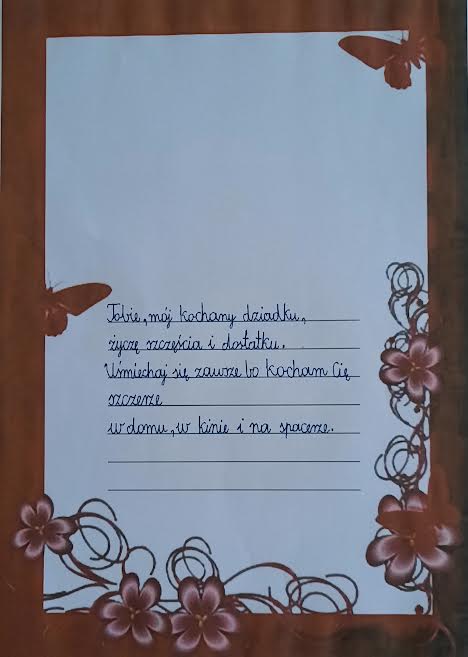 Tobie, mój kochany dziadku,
życzę szczęścia i dostatku.
Uśmiechaj się zawsze bo kocham Cię
szczerze
w domu, w kinie i na spacerze.